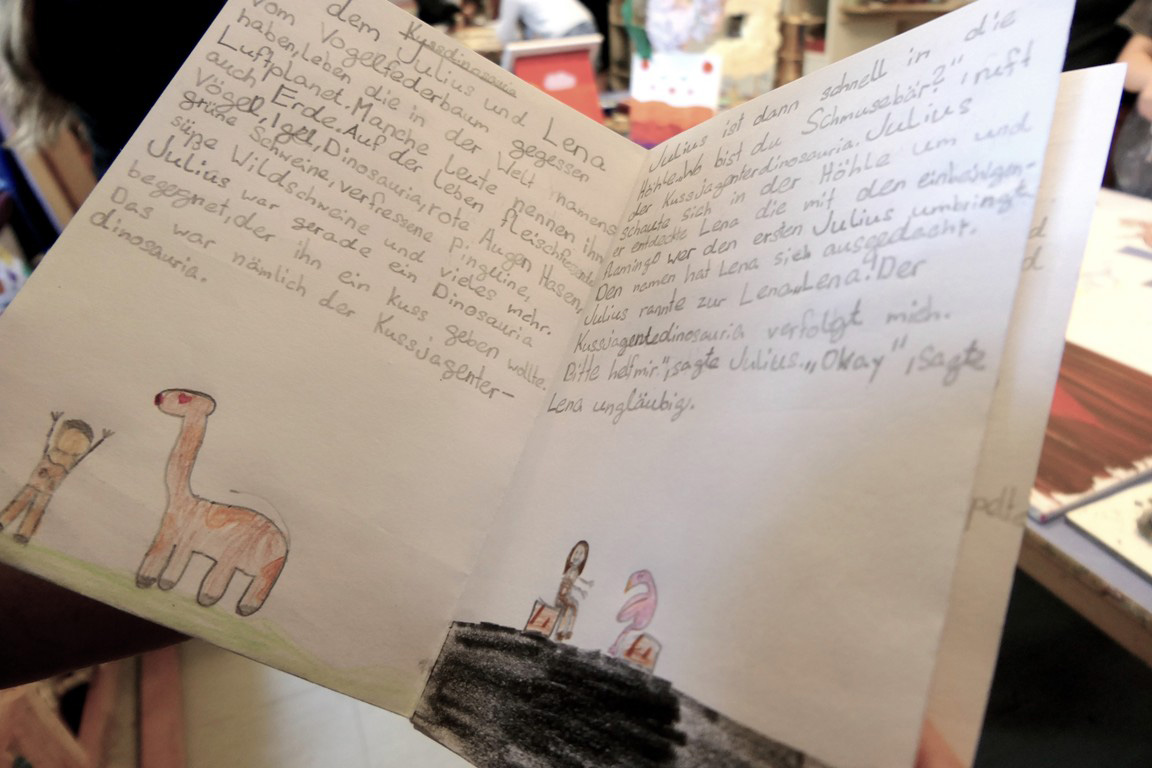 Kussdinosauria
dem Julius und Lena
vom Vogelfederbaum gegessen
haben, leben die in der Welt namens
Luftplanet. Manche Leute nennen ihn
auch Erde. Auf der leben
Vögel, Igel, Dinosauria, rote Augen Hasen,
grüne Schweine, verfressene Pinguine,
süße Wildschweine und vieles mehr.
Julius war gerade ein Dinosauria
begegnet, der ihn ein Kuss geben wollte.
Das war nämlich der Kussjagenter-
dinosauria.
Julius ist dann schnell in die
bist du Schmusebär?", ruft
der Kussjagenterdinosauria. Julius
schaute sich in der Höhle um und
er entdeckte Lena die mit den einbeinigen-
flamingo wer den ersten Julius umbringt.
Den namen hat Lena sich ausgedacht.
Julius rannte zur Lena. Lena! Der
Kussjagentedinosauria verfolgt mich.
Bitte helf mir", sagte Julius. „Okay", sagte
Lena ungläubig.